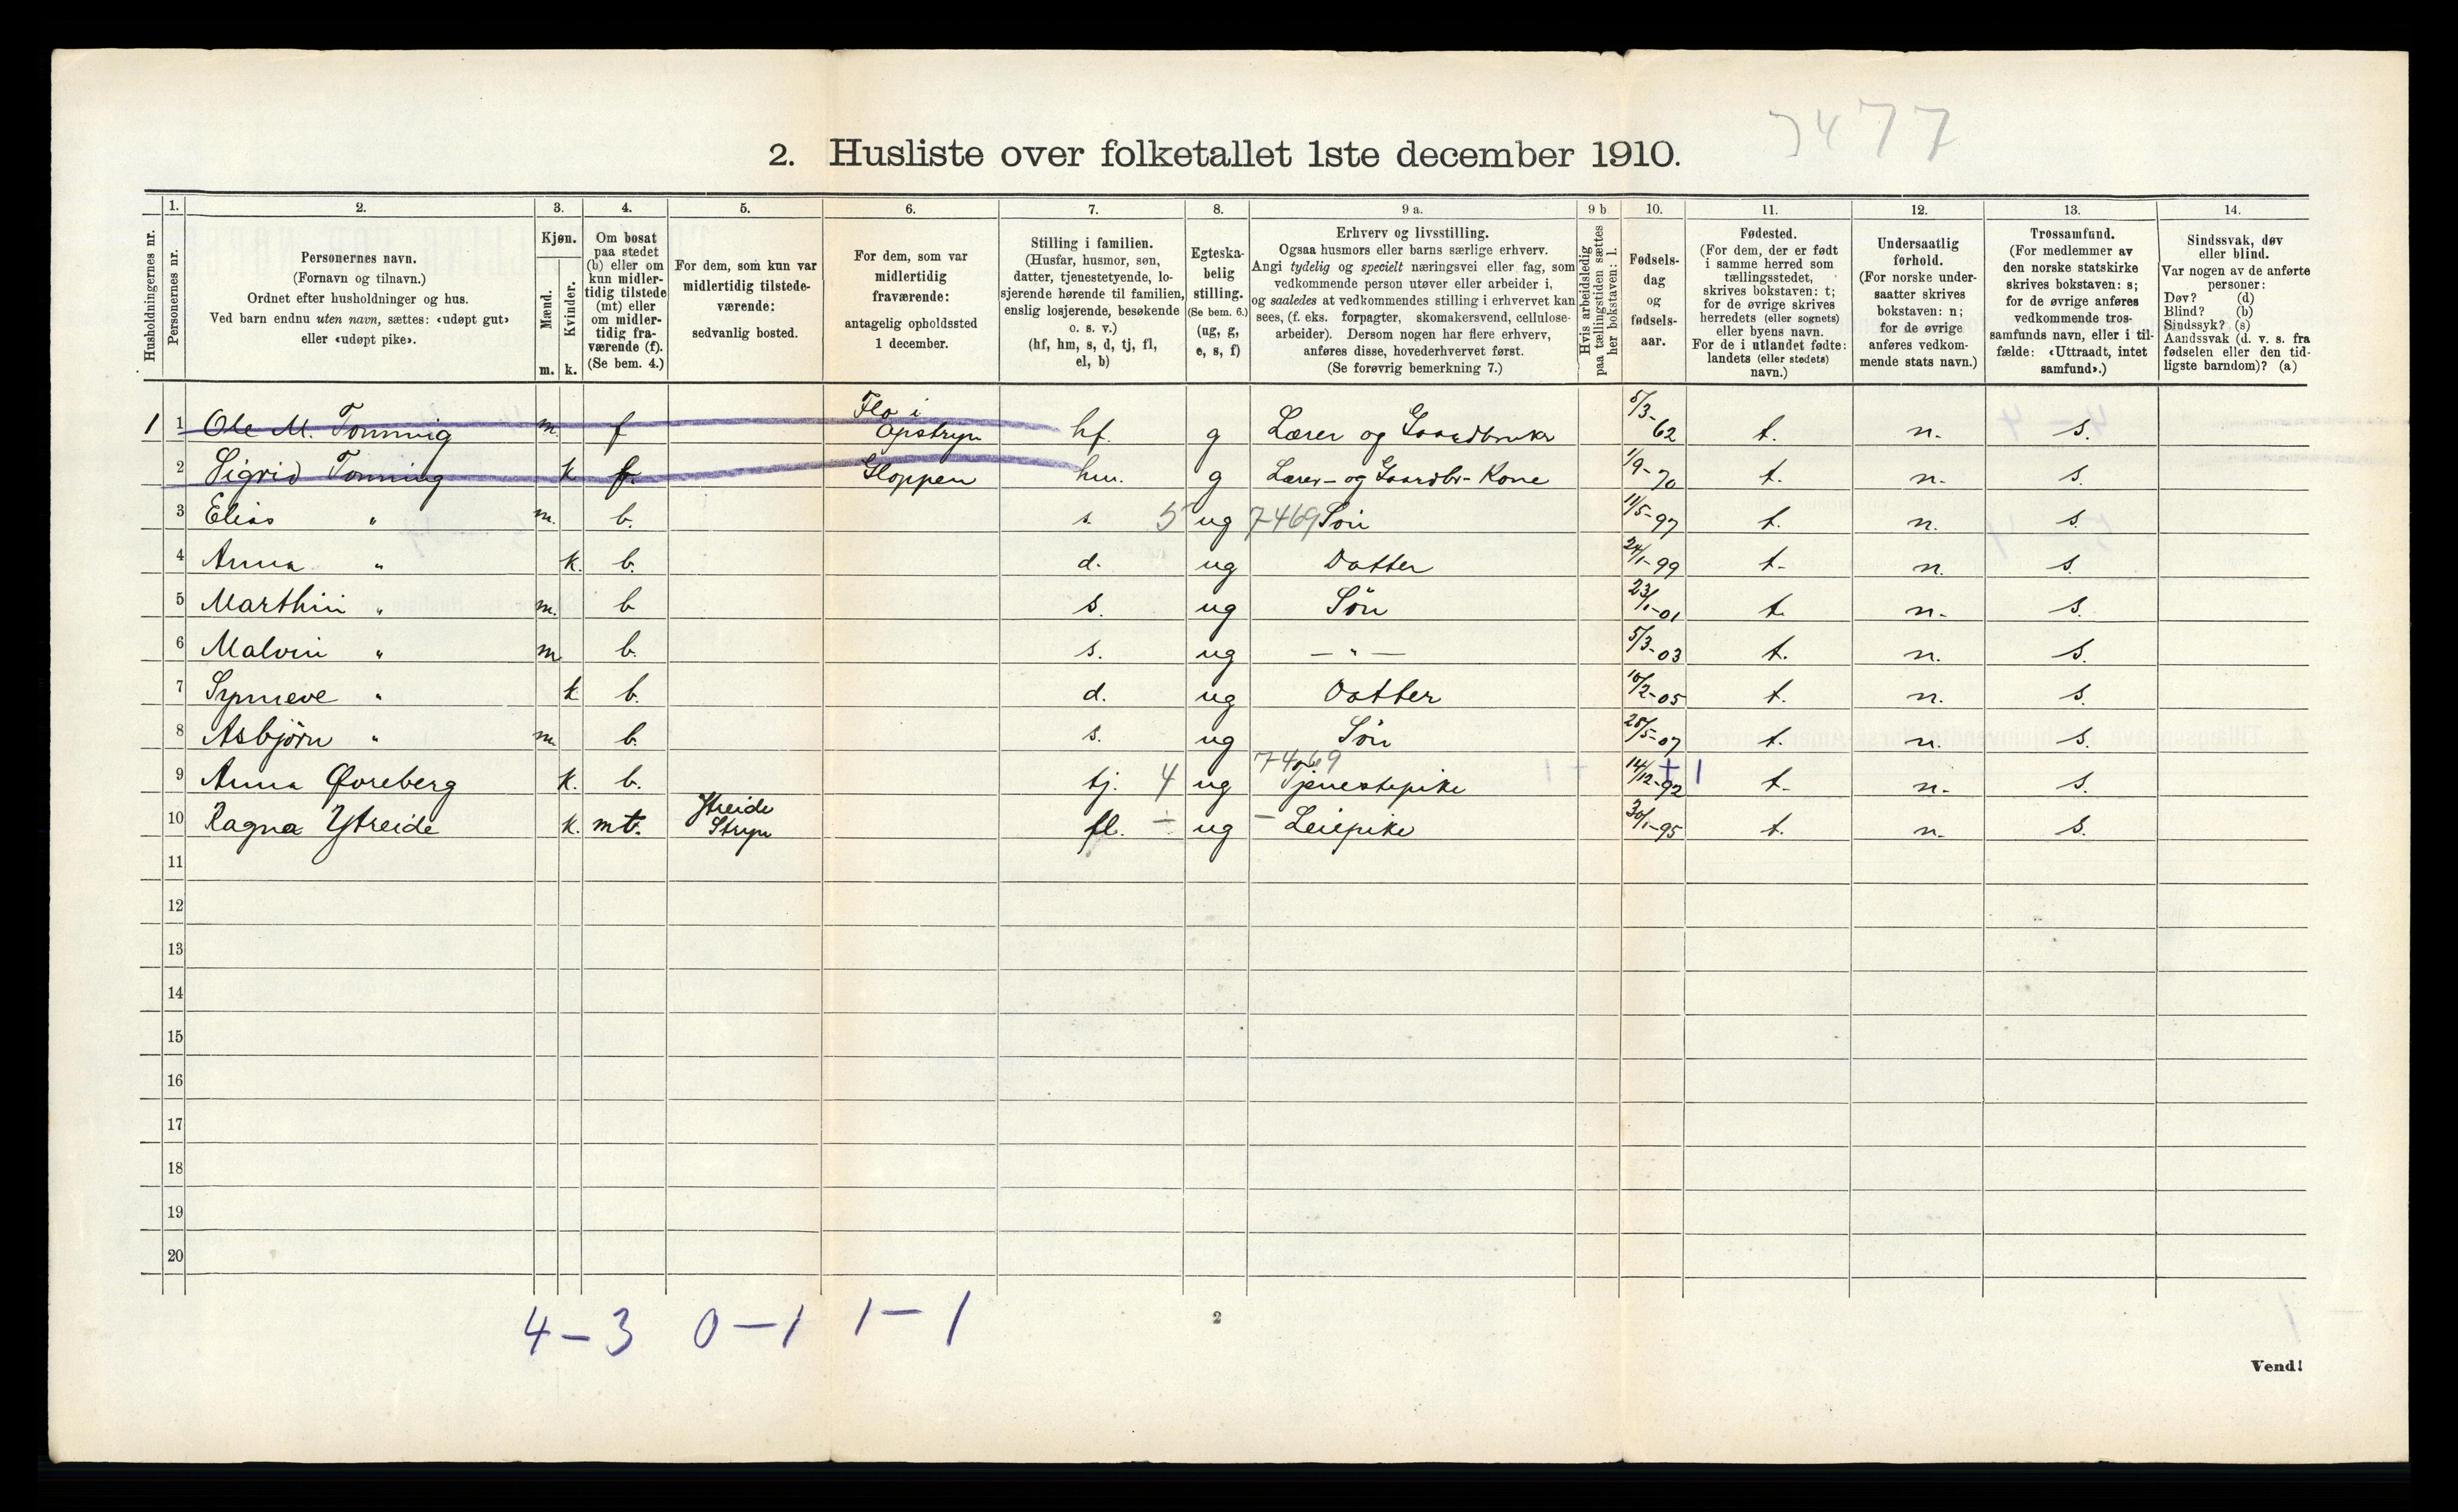 7477
2. Husliste over folketallet 1ste december 1910.
Husholdningernes nr.
1.
Personernes nr.
2.
Personernes navn.
(Fornavn og tilnavn.)
Ordnet efter husholdninger og hus.
Ved barn endnu uten navn, sættes: «udøpt gut»
eller «udøpt pike».
3.
Kjøn.
Mænd.
Kvinder.
m. k.
4.
Om bosat
paa stedet
(b) eller om
kun midler-
tidig tilstede
(mt) eller
om midler-
tidig fra-
værende (f).
(Se bem. 4.)
5.
For dem, som kun var
midlertidig tilstede-
værende:
sedvanlig bosted.
6.
For dem, som var
midlertidig
fraværende:
antagelig opholdssted
1 december.
7.
Stilling i familien.
(Husfar, husmor, søn,
datter, tjenestetyende, lo-
sjerende hørende til familien,
enslig losjerende, besøkende
o. s. v.)
(hf, hm, s, d, tj, fl,
el, b)
8.
Egteska-
belig
stilling.
(Se bem. 6.)
(ug, g,
e, s, f)
9 a.
Erhverv og livsstilling.
Ogsaa husmors eller barns særlige erhverv.
Angi tydelig og specielt næringsvei eller fag, som
vedkommende person utøver eller arbeider i,
og saaledes at vedkommendes stilling i erhvervet kan
sees, (f. eks. forpagter, skomakersvend, cellulose-
arbeider). Dersom nogen har flere erhverv,
anføres disse, hovederhvervet først.
(Se forøvrig bemerkning 7.)
9 b
Hvis arbeidsledig
paa tællingstiden sættes
her bokstaven: l.
10.
Fødsels-
dag
og
fødsels-
aar.
11.
Fødested.
(For dem, der er født
i samme herred som
tællingsstedet,
skrives bokstaven: t;
for de øvrige skrives
herredets (eller sognets)
eller byens navn.
For de i utlandet fødte:
landets (eller stedets)
navn.)
12.
Undersaatlig
forhold.
(For norske under-
saatter skrives
bokstaven: n;
for de øvrige
anføres vedkom-
mende stats navn.)
13.
Trossamfund.
(For medlemmer av
den norske statskirke
skrives bokstaven: s;
for de øvrige anføres
vedkommende tros-
samfunds navn, eller i til-
fælde: «Uttraadt, intet
samfund».)
14.
Sindssvak, døv
eller blind.
Var nogen av de anførte
personer:
Døv? (d)
Blind? (b)
Sindssyk? (s)
Aandssvak (d. v. s. fra
fødselen eller den tid-
ligste barndom)? (a)
1 1 Ole M. Tonning m. f Flo i Opstryn hf. g Lærer og Gaardbruker 5/3-62 t. n. s.
2 Sigrid Tonning k f. Gloppen hm. g Lærer- og Gaardbr- Kone 1/9-70 t. n. s.
3 Elias " m. b. s. 5 ug 7469 Søn 11/5-97 t. n. s.
4 Anna " k. b. d. ug Datter 24/1-99 t. n. s.
5 Marthin " m. b s. ug Søn 23/1-01 t. n. s.
6 Malvin " m b. s. ug — " — 5/3-03 t. n. s.
7 Synneve " k b. d. ug Datter 10/2-05 t. n. s.
8 Asbjörn " m. b. s. ug Søn 25/5-07 t. n. s.
9 Anna Øvreberg k. b. tj. 4 ug 7469 Tjenestepike 14/12-92 t. n. s.
10 Ragna Ytreide k. mt. Ytreide Stryn fl. — ug — Leiepike 30/1-95 t. n. s.
11
12
13
14
15
16
17
18
19
20
4 — 3 0 — 1 1 — 1
2
Vend!